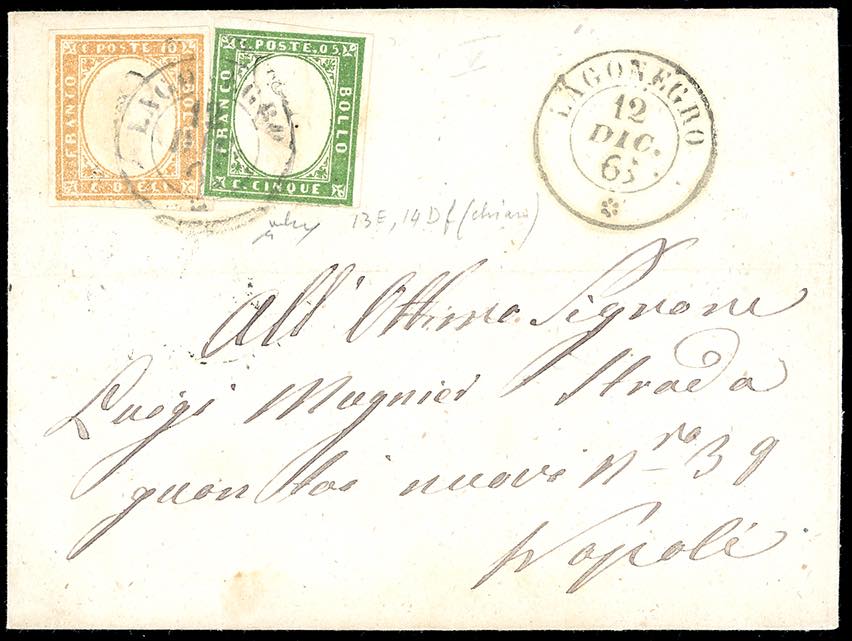 C. POSTE. 10
FRANCO
BOLLO
C. DIECI
C. POSTE. 05
FRANCO
BOLLO
C. CINQUE
LAGONEGRO
12
DIC.
LAGONEGRO
13E, 14Df (chiaro)
All' Ottimo Signore
Luigi Magnier Strada
nuovi Nro 39
Napoli